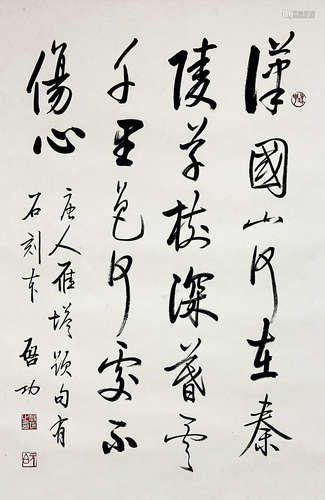 漢國山河在秦
陵草樹深暮雲
千里色何處不
傷心
唐人雁塔題句有
石刻本 啓功